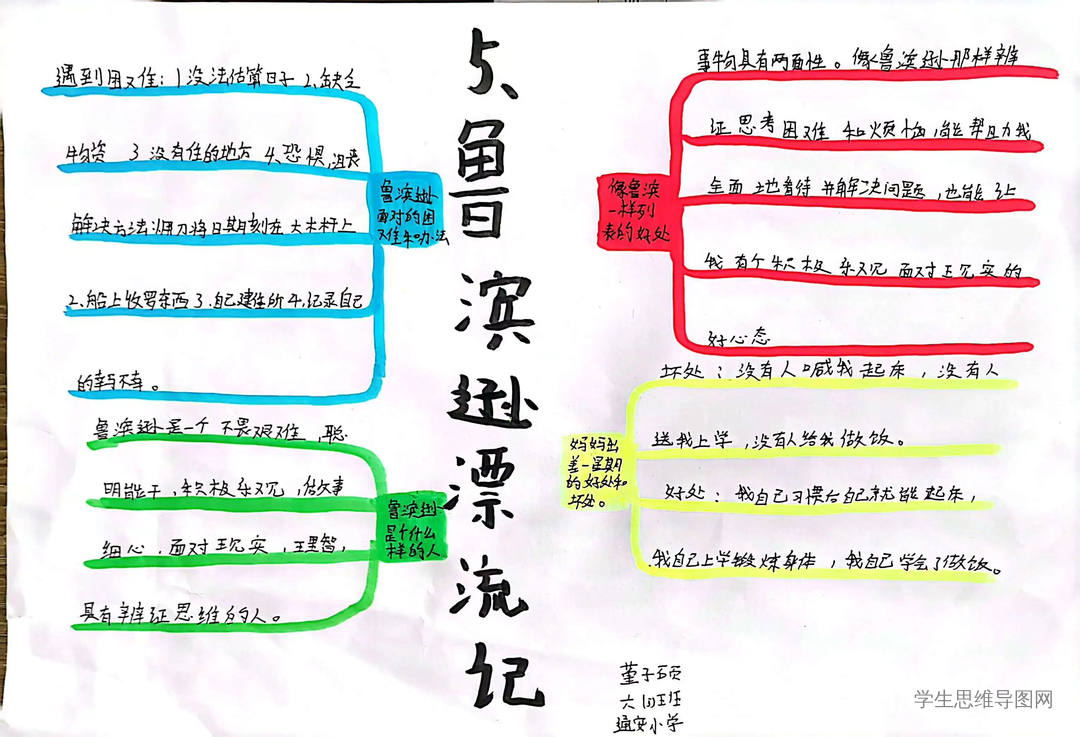 5、鲁滨逊漂流记
遇到困难：1没法估算日子 2、缺乏
物资 3 没有住的地方 4、恐惧，沮丧
解决方法：1用刀将日期刻在大木杆上
2、船上收罗东西 3、自己建住所 4、记录自己
的幸与不幸。
鲁滨逊
面对的困
难和办法
鲁滨逊是一个不畏艰难，聪
明能干，积极乐观，做事
细心，面对现实，理智，
具有辩证思维的人。
鲁滨逊
是个什么
样的人
事物具有两面性。像鲁滨逊那样辨
证思考困难和烦恼，能帮助我
全面地看待并解决问题，也能让
我有个积极乐观面对现实的
好心态
像鲁滨
一样列
表的好处
坏处：没有人喊我起床，没有人
送我上学，没有人给我做饭。
好处：我自己习惯后自己就能起床，
我自己上学锻炼身体，我自己学会了做饭。
妈妈出
差一星期
的好处和
坏处。
董子
六（1）班
通安小学
学生思维导图网